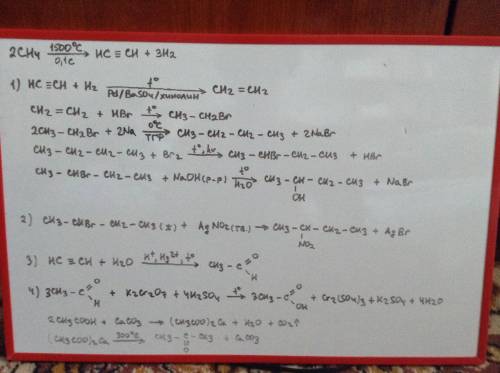 2CH₄ —1500°C / 0,1c→ HC≡CH + 3H₂
1) HC≡CH + H₂ —t° / Pd/BaSO₄/хинолин→ CH₂=CH₂
CH₂=CH₂ + HBr —t°→ CH₃-CH₂Br
2CH₃-CH₂Br + 2Na —0°C / ТГФ→ CH₃-CH₂-CH₂-CH₃ + 2NaBr
CH₃-CH₂-CH₂-CH₃ + Br₂ —t°, hν→ CH₃-CHBr-CH₂-CH₃ + HBr
CH₃-CHBr-CH₂-CH₃ + NaOH(р-р) —t° / H₂O→ CH₃-CH-CH₂-CH₃ + NaBr
OH
2) CH₃-CHBr-CH₂-CH₃(ж) + AgNO₂(тв.) → CH₃-CH-CH₂-CH₃ + AgBr
NO₂
3) HC≡CH + H₂O —H⁺, Hg²⁺, t°→ CH₃-C=O
H
4) 3CH₃-C=O + K₂Cr₂O₇ + 4H₂SO₄ —t°→ 3CH₃-C=O + Cr₂(SO₄)₃ + K₂SO₄ + 4H₂O
H OH
2CH₃COOH + CaCO₃ → (CH₃COO)₂Ca + H₂O + CO₂↑
(CH₃COO)₂Ca —300°C→ CH₃-C-CH₃ + CaCO₃
O